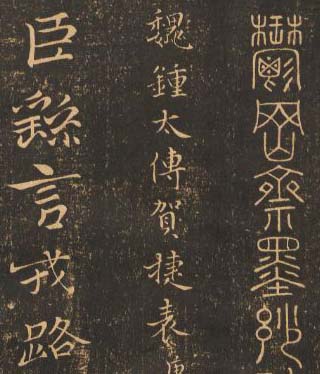 鬱岡齋墨妙
魏鍾太傅賀捷表
臣繇言戎路